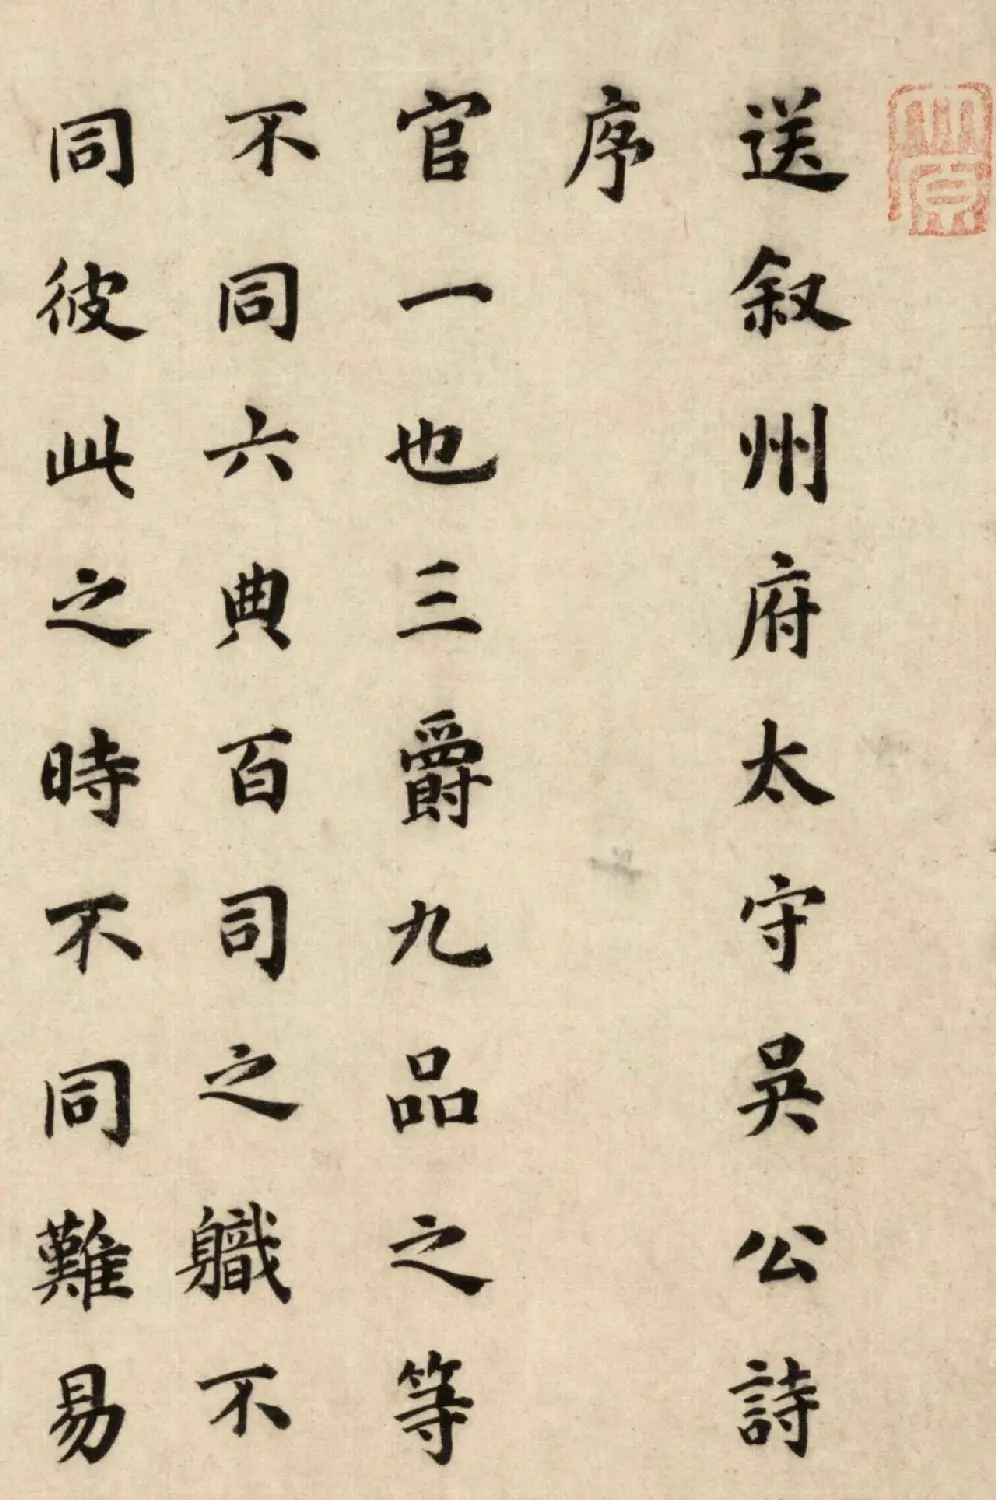 送叙州府太守吳公詩
序
官一也三爵九品之等
不同六典百司之軄不
同彼此之時不同難易